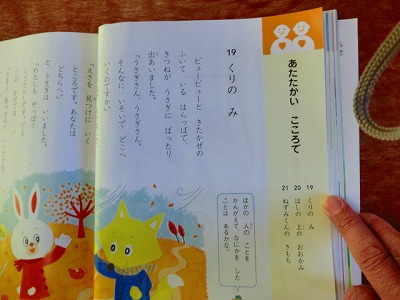 あたたかい こころで
19 くりの み
20 はしの 上の おおかみ
21 ねずみくんの きもち
ほかの 人の ことを
かんがえて、なにかを した
ことは あるかな。
19 くりの み
ビュービューと きたかぜの
ふいて いる はらっぱで、
きつねが うさぎに ばったり
出あいました。
「うさぎさん、うさぎさん。
そんなに いそいで どこへ
いくのですか。」
「えさを 見つけに いく
ところです。あなたは
どちらへ。」
と、うさぎは いいました。
「わたしも やっぱり